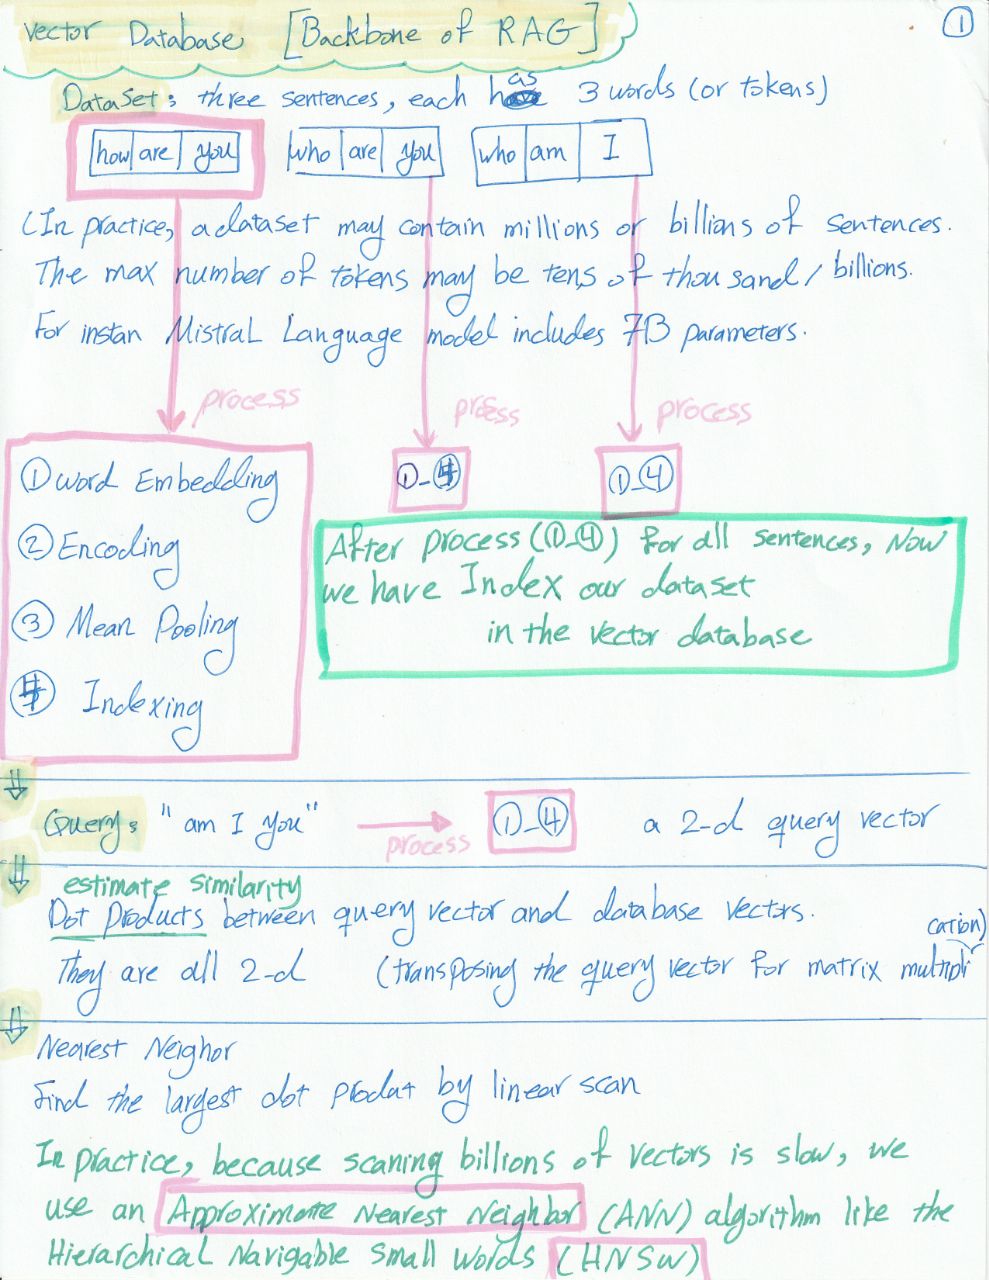 Vector Database [Backbone of RAG] 1
DataSet: three sentences, each has 3 words (or tokens)
how are you who are you who am I
(In practice, a dataset may contain millions or billions of sentences.
The max number of tokens may be tens of thousand / billions.
For instan Mistral Language model includes 7B parameters.
process process process
① word Embedding
② Encoding
③ Mean Pooling
④ Indexing
①-④ ①-④
After process (①-④) for all sentences, Now
we have Index our dataset
in the vector database
Query: "am I you" process ①-④ a 2-d query vector
estimate similarity
Dot Products between query vector and database vectors.
They are all 2-d (transposing the query vector for matrix multipli
cation)
Nearest Neighor
Find the largest dot produt by linear scan
In practice, because scaning billions of vectors is slow, we
use an Approximate Nearest Neighbor (ANN) algorithm like the
Hierarchical Navigable Small Words (HNSW)